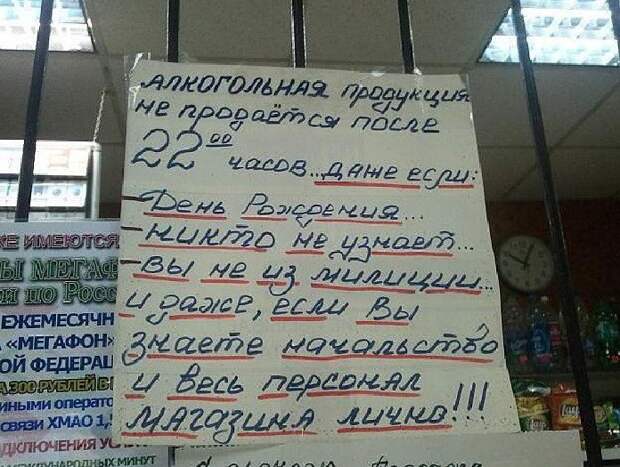 АЛКОГОЛЬНАЯ ПРОДУКЦИЯ
НЕ ПРОДАЁТСЯ ПОСЛЕ
22⁰⁰ ЧАСОВ... ДАЖЕ ЕСЛИ:
- День Рождения...
- НИКТО НЕ УЗНАЕТ...
- ВЫ НЕ ИЗ МИЛИЦИИ...
и даже, если Вы
знаете начальство
и весь персонал
МАГАЗИНА ЛИЧНО!!!
ЖЕ ИМЕЮТСЯ
Ы МЕГАФ
и по Росс
ЕЖЕМЕСЯЧН
А «МЕГАФОН»
ОЙ ФЕДЕРАЦ
А 300 РУБЛЕЙ В
ИНЫМИ ОПЕРАТО
СВЯЗИ ХМАО 1,5
ДКЛЮЧЕНИЯ УСЛ
МЕЖДУНАРОДНЫХ МИНУТ
Lay's